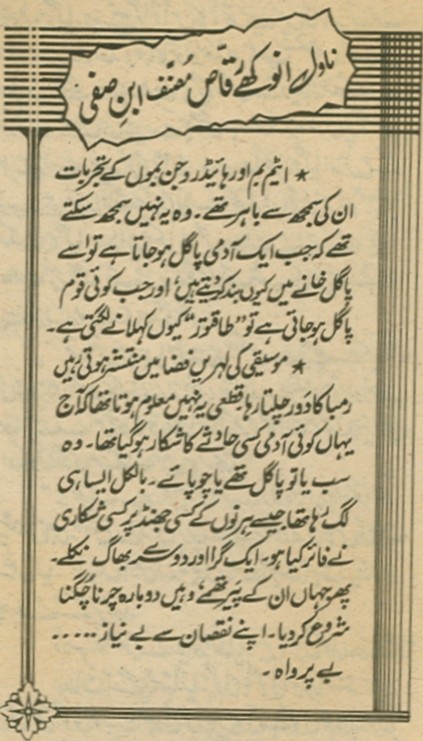 ناول، انوکھے رقّاص مُصنّف ابنِ صفی
* ایٹم بم اور ہائیڈروجن بموں کے تجربات
ان کی سمجھ سے باہر تھے۔ وہ یہ نہیں سمجھ سکتے
تھے کہ جب ایک آدمی پاگل ہوجاتا ہے تو اُسے
پاگل خانے میں کیوں بند کردیتے ہیں، اور جب کوئی قوم
پاگل ہوجاتی ہے تو ”طاقتور“ کیوں کہلانے لگتی ہے۔
* موسیقی کی لہریں فضا میں منتشر ہوتی رہیں
رمبا کا دَور چلتا رہا قطعی یہ نہیں معلوم ہوتا تھا کہ آج
یہاں کوئی آدمی کسی حادثے کا شکار ہوگیا تھا۔ وہ
سب یا تو پاگل تھے یا چوپائے۔ بالکل ایسا ہی
لگ رہا تھا جیسے ہرنوں کے کسی جھنڈ پر کسی شکاری
نے فائر کیا ہو۔ ایک گرا اور دوسرے بھاگ نکلے۔
پھر جہاں ان کے پَیر تھمے، وہیں دوبارہ چرنا چُگنا
شروع کردیا۔ اپنے نقصان سے بے نیاز .....
بے پرواہ۔